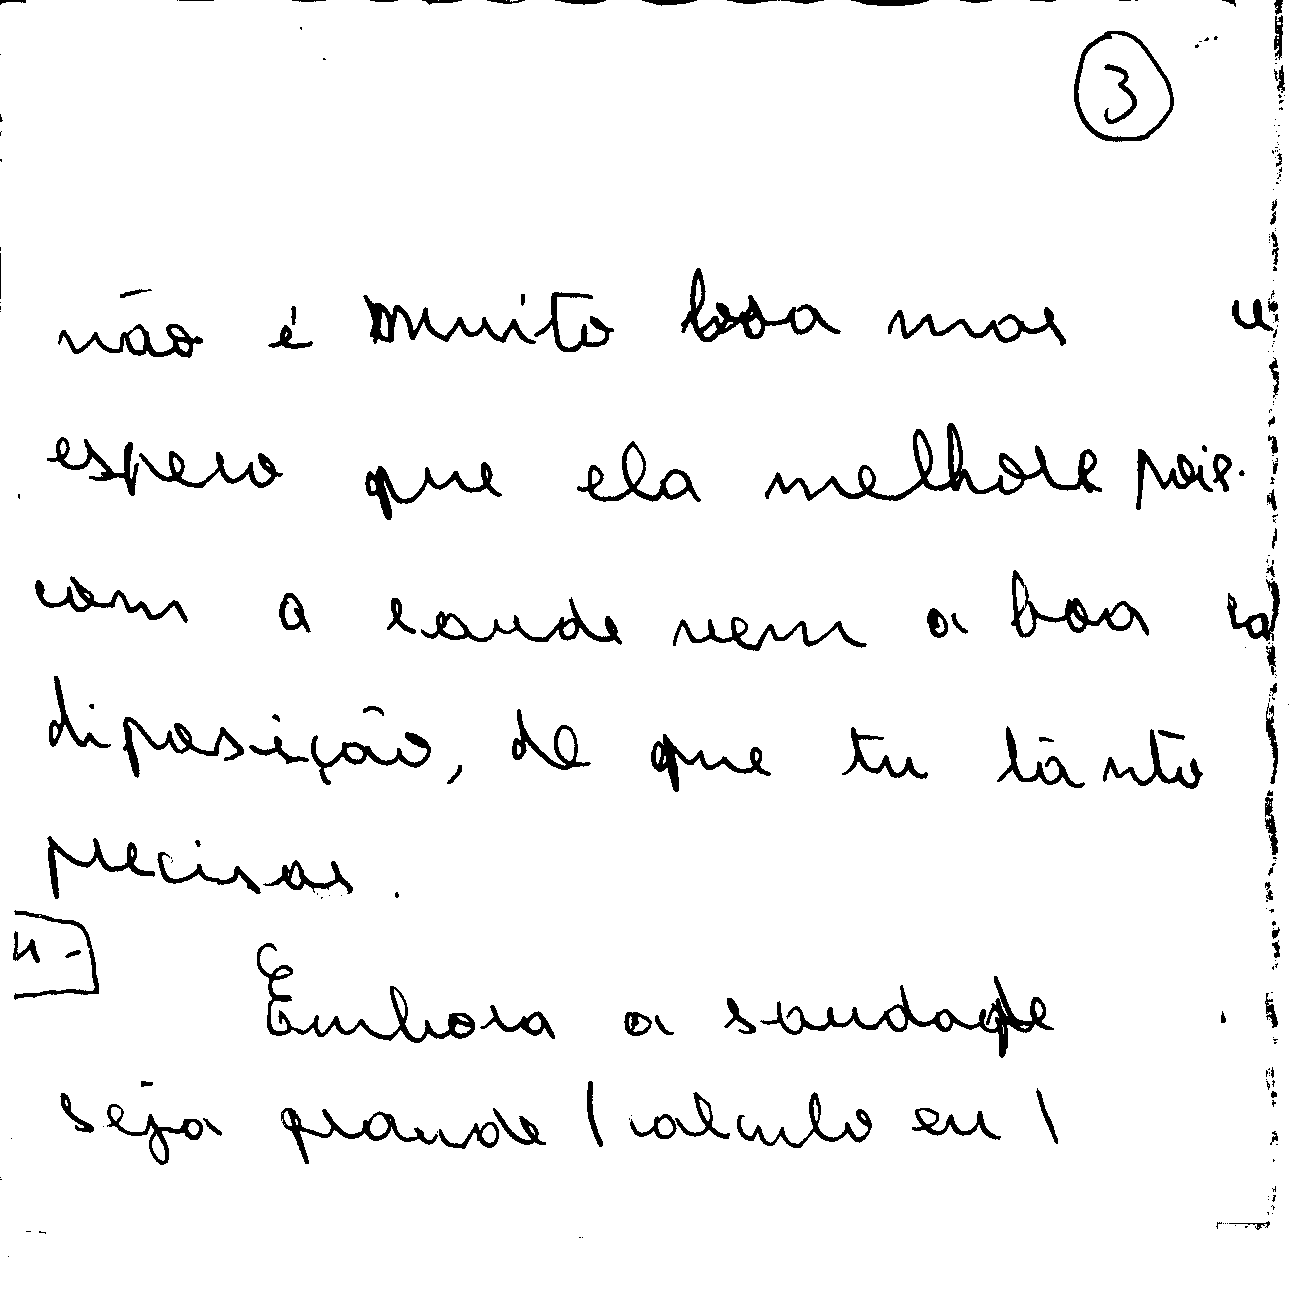 3
não é muito boa mas
espero que ela melhore pois
com a saude vem a boa
diposição, de que tu tanto
precisas.
4-
Embora a saudade
seja grande (calculo eu)